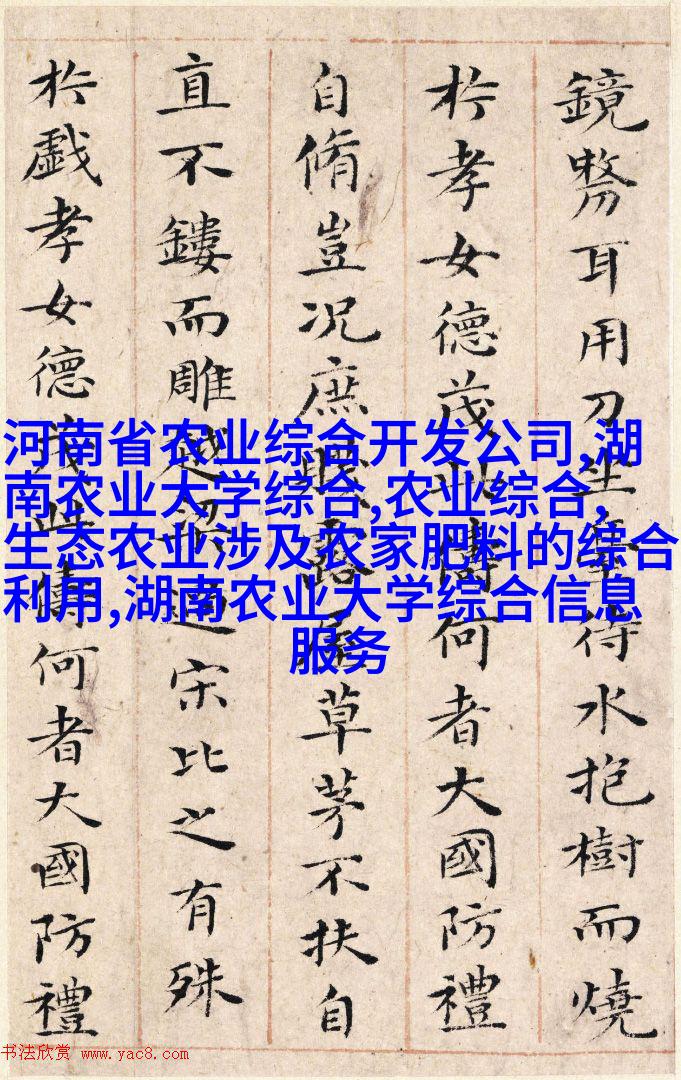 鏡剺耳用刀坐臺待水抱樹而燒
於孝女德茂此儔何者大國防禮
自脩豈況庶賤露屋草茅不扶自
直不鏤而雕越梁過宋比之有殊
於戲孝女德茂此儔何者大國防禮
河南省农业综合开发公司,湖
南农业大学综合,农业综合,
生态农业涉及农家肥料的综合
利用,湖南农业大学综合信息
服务
书法欣赏 www.yac8.com